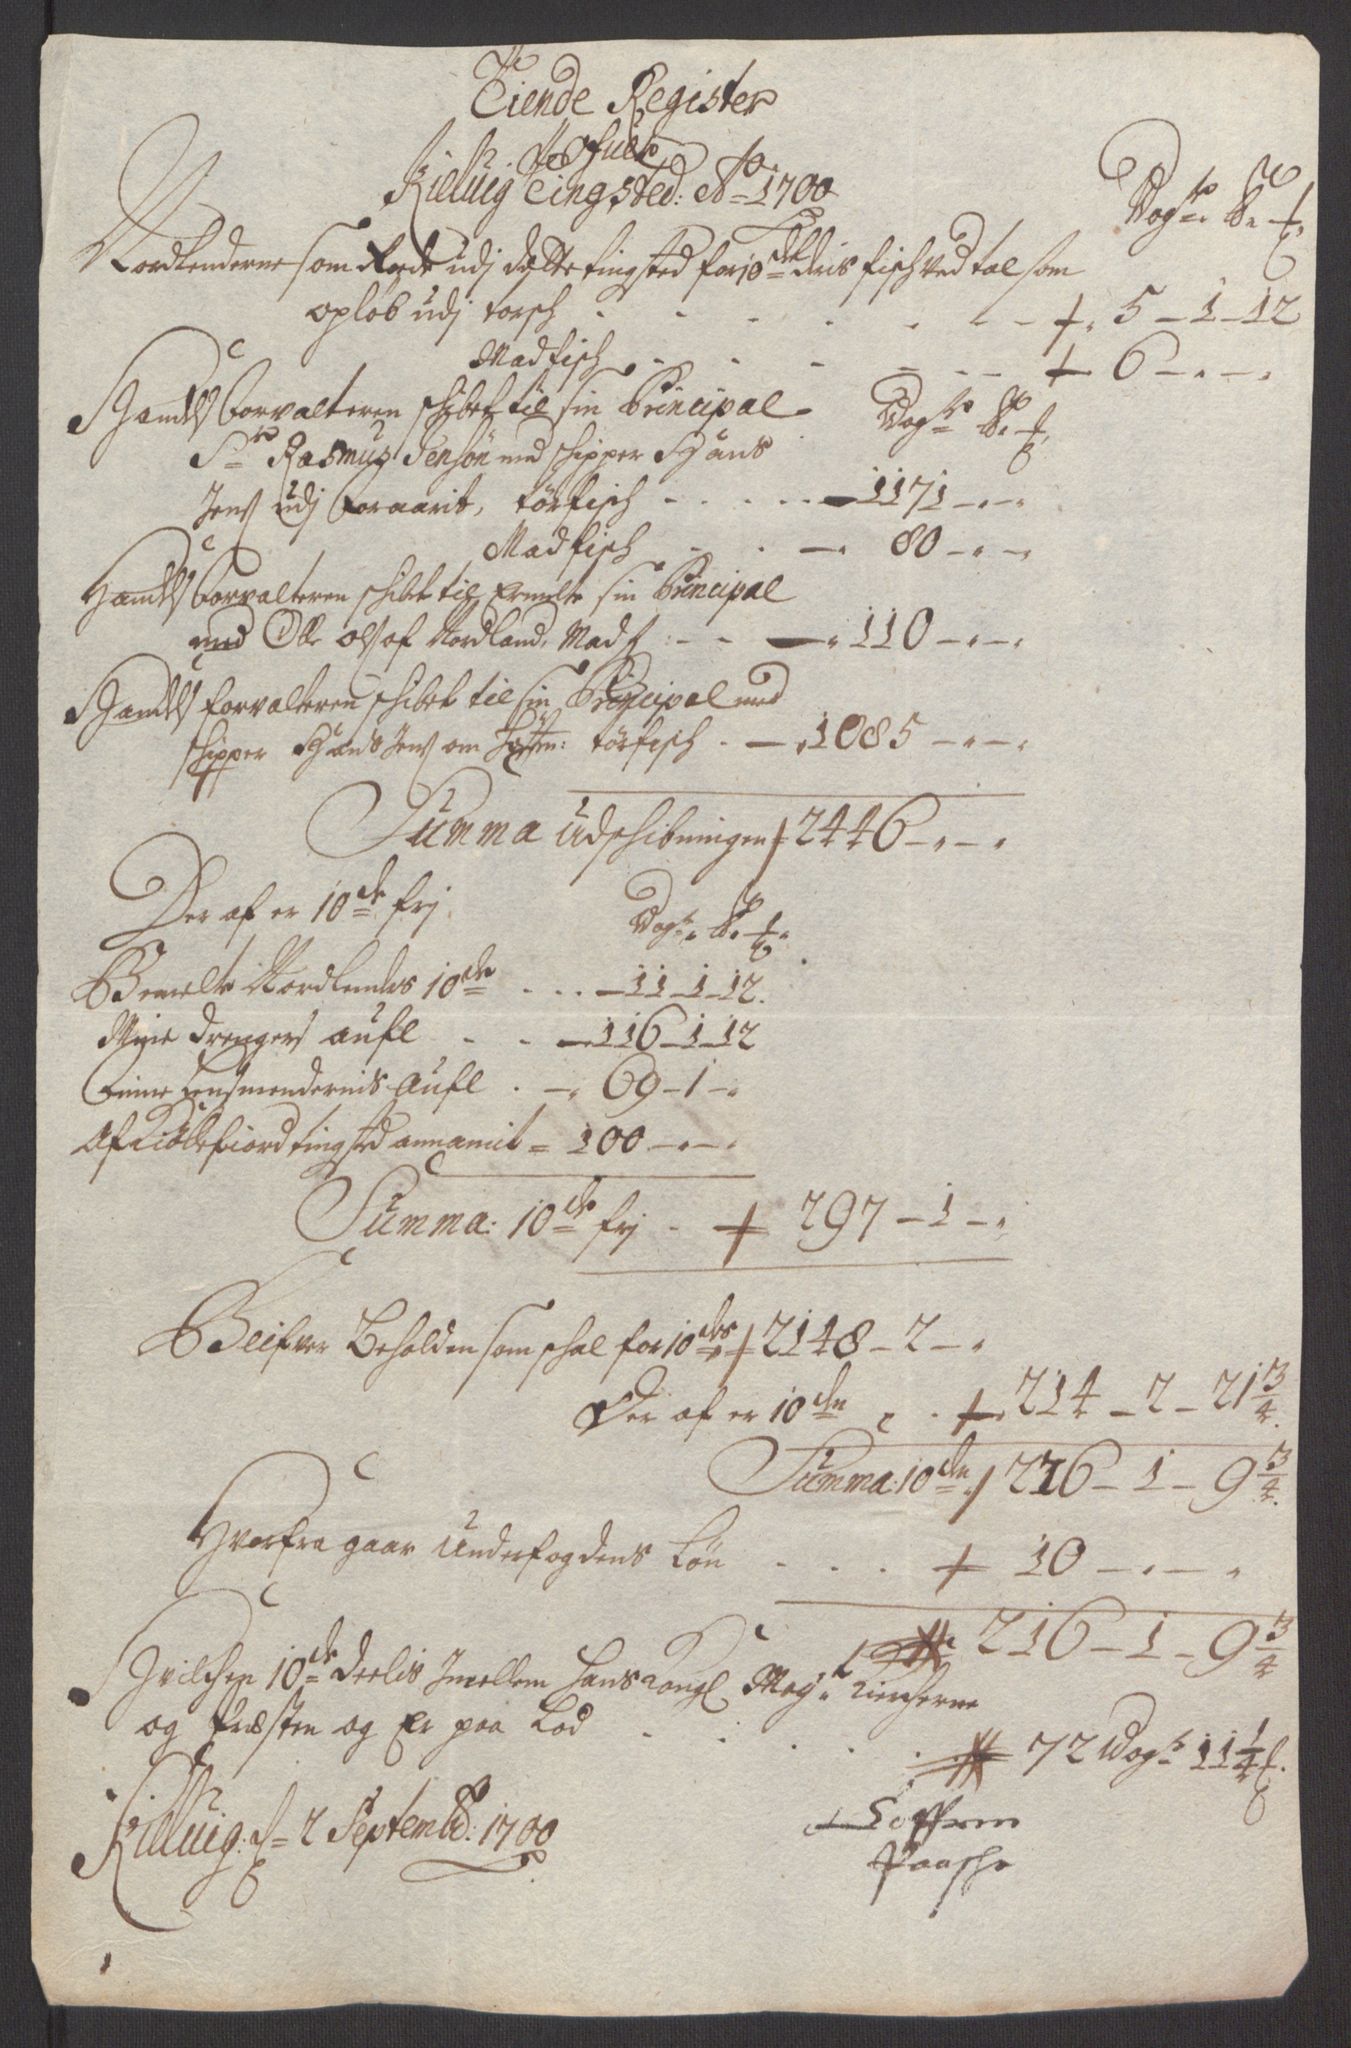 Tiende Register
Kielvig Tingsted: Ao 1700
Wogr. B. t.
Nordlenderne som Roede udj dette tingsted for 10de deris fisch ved tal som
opløb udj torsch - - - - - + 5 - 1 - 12
Madfisch - - - + 6 - " - "
Handels forvalteren schibet til sin Principal
Wogr. B. t.
Sr Rasmus Jensøn med schipper Hans
Jens udj foraarit, törfisch - - - 1171 - " - "
Madfisch - - - 80 - " - "
Handels forvalteren schibet til Ermelte sin Principal
med Olle Ols af Nordland, Madf: - - 110 - " - "
Handels forvalteren schibet til sin Principal med
schipper Hans Jens om Høsten: törfisch - 1085 - " - "
Summa Udschibningen + 2446 - " - "
Der af er 10de frj
Wogr. B. t.
Bemelte Nordlenders 10de - - - 11 - 1 - 12.
Mine drengers aufl - - - 116 - 1 - 12
Finne Lensmendernis Aufl - - 69 - 1 - "
Af Kiøllefiord tingsted annamit = 100 - " - "
Summa: 10de frj - + 297 - 1 - "
Bleifver Beholden som schal for 10des + 2148 - 2 - "
Der af er 10den - + 214 - 2 - 21 3/4
Summa: 10den + 226 - 1 - 9 3/4
Hvorfra gaar Underfogdens Løn - - - + 10 - " - "
216 - 1 - 9 3/4
Hvilchen 10de deelis Imellem Hans Kongl Mayt Kircherne
og Præsten og Er paa Lod - - - - 72 Wogr 11 1/4 t.
Kielvig: d= 2 Septembd: 1700
Loffren
Paasche